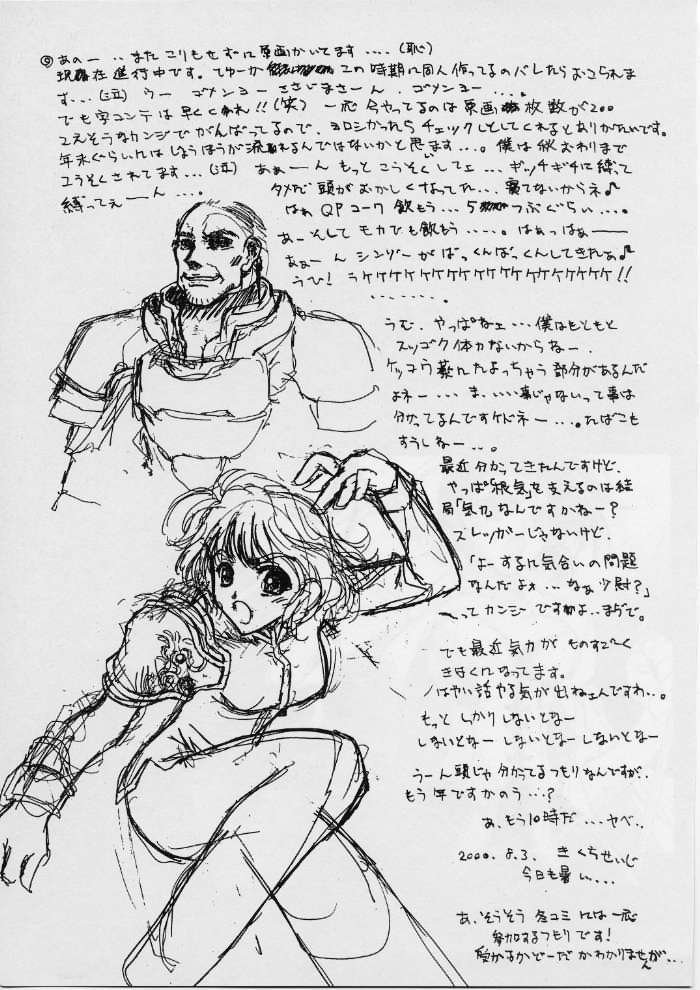 ◎あのー‥またこりもせずに原画かいてます‥‥(恥)
現在進行中です。てゆーか この時期に同人作ってるのバレたらおこられま
す‥‥(泣) ウー ゴメンヨー さざじまさーん . ゴメンヨー ‥‥。
でも字コンテは早くくれ!!(笑) 一応今やってるのは原画枚数が200
こえそうなカンジでがんばってるので、ヨロシかったらチェックしとしてくれるとありがたいです。
年末ぐらいにはじょうほうが流れるんではないかと思います‥‥。僕は秋おわりまで
こうそくされてます‥‥(泣) あぁーん もっと こうそくしてェ‥‥ギッチギチに縛って
縛ってぇーん ‥‥。
タメだ 頭がおかしくなってた‥‥寝てないからネ♪
はぁ QPコーワ 飲もう‥‥5つぶぐらい‥‥。
あーそしてモカでも飲もう‥‥‥。はぁっはぁー
あぁーん シンゾーが ばっくんばっくんしてきたぁ♪
うひ! ラケケケケケケケケケケケケケケケケケ!!
‥‥‥‥。
うむ、やっぱねェ‥‥僕はもともと
スッゴク体力ないからねー.
ケッコウ薬にたよっちゃう部分があるんだ
よネー‥‥ま、いい事じゃないって事は
分かってるんですケドネー‥‥。たばこも
すうしねー‥‥。
最近分かってきたんですけど、
やっぱ「根気」を支えるのは結
局「気力」なんですかねー?
スレッガーじゃないけど、
「よーするに気合いの問題
なんだよォ‥‥なぁ少尉?」
～ってカンジですわよ‥まぢで。
でも最近気力が ものすごーく
きはくになってます。
はやい話やる気が出ねェんですわ‥。
もっと しっかりしないとなー
しないとなー しないとなー しないとなー
うーん頭じゃ分かってるつもりなんですが‥
もう年ですかのう‥‥?
あ、もう10時だ‥‥ヤベ‥
2000. 8.3. きくちせいじ
今日も暑い‥‥
あ、そうそう 冬コミには一応
参加するつもりです!
受かるかどーだかわかりませんが‥‥